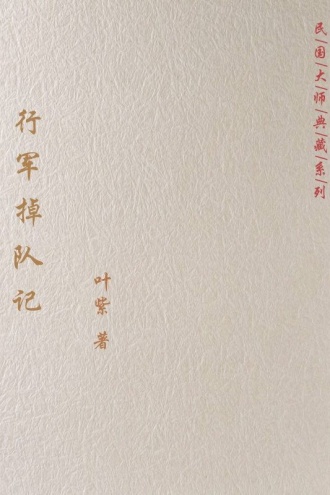 民|国|大|师|典|藏|系|列
行军掉队记
叶紫 著